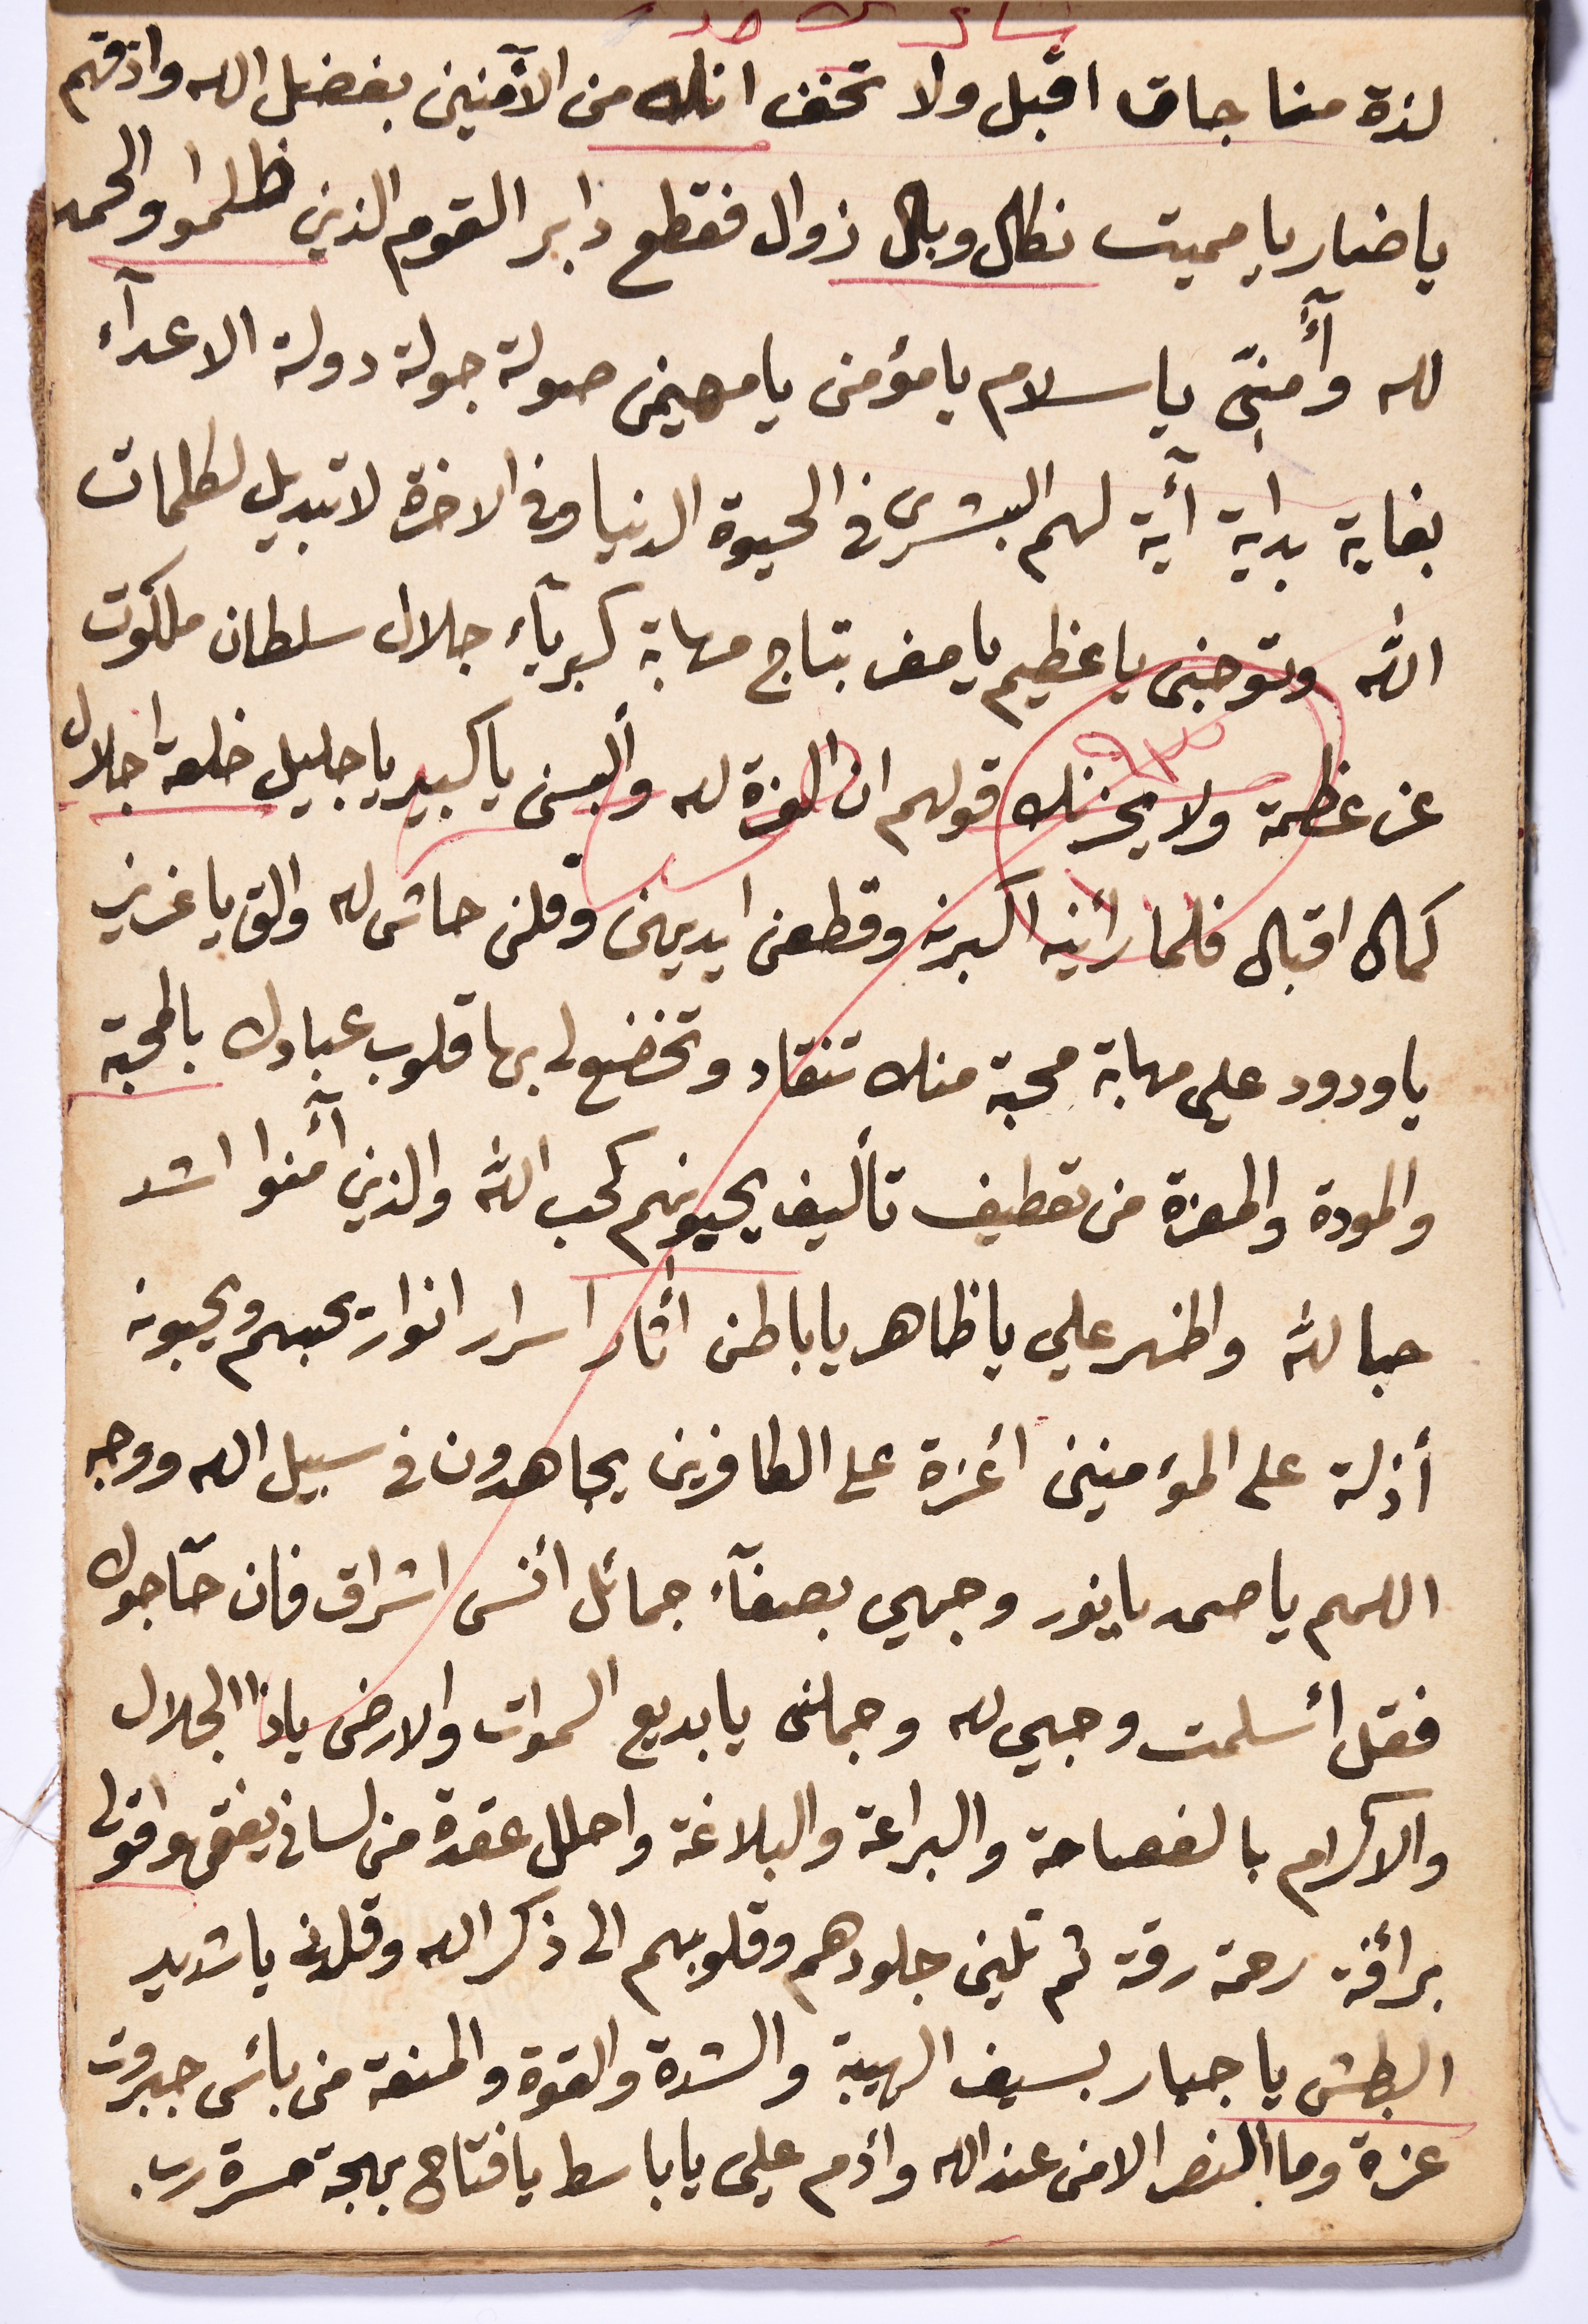 لذة مناجاة اقبل ولا تخف انك من الآمنين بفضل الله واذقهم
ياضار يا مميت نكال وبال زوال فقطع دابر القوم الذين ظلموا والحمد
لله وأٓمنّي ياسلام يامؤمن يامهيمن صولة جولة دولة الاعدآء
بغاية بداية آية لهم البشرى في الحيوة الدنيا وفي الاخرة لا تبديل لكلمات
الله وتوجنى ياعظيم يامعز بتاج مهابة كبريآء جلال سلطان ملكوت
عز عظمة ولا يحزنك قولهم ان العزة لله وألبسنى ياكبير ياجليل خلعة اجلال
كمال اقبال فلما رأينه اكبرنه وقطعن ايديهن وقلن حاش لله والق ياعزيز
ياودود على مهابة محبة منك تنقاد وتخضع لى بها قلوب عبادك بالمحبة
والمودة والمعزة من تعطيف تأليف يحبونهم كحب الله والذين آمنوا اشد
حبا لله واظهر علي ياظاهر ياباطن اثار اسرار انوار يحبهم ويحبونه
أذلة على المؤمنين أعزة على الكافرين يجاهدون في سبيل الله ووجه
اللهم ياصمد يانور وجهي بصفآء جمائل انس اشراق فان حآجوك
فقل أسلمت وجهي لله وجملنى يابديع السموات والارض ياذا الجلال
والاكرام بالفصاحة والبراعة والبلاغة واحلل عقدة من لساني يفقهوا قولى
برأفة رحمة رقة ثم تلين جلودهم وقلوبهم الى ذكر الله وقلدنى ياشديد
البطش ياجبار بسيف الهيبة والشدة والقوة والمنعة من بأس جبروت
عزة وما النصر الا من عند الله وأدم على ياباسط يافتاح بهجة مسرة رب